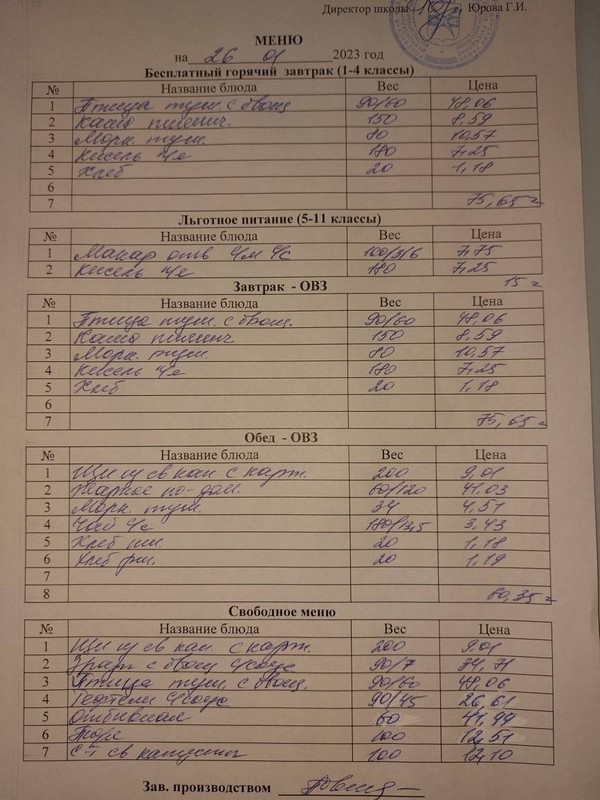 Директор школы Юрова Г.И.
МЕНЮ
на 26 01 2023 год
Бесплатный горячий завтрак (1-4 классы)
№ Название блюда Вес Цена
1 Птица туш. с овощ 90/60 48,06
2 Каша пшенич. 150 8,59
3 Морк. туш. 80 10,57
4 Кисель 180 7,25
5 Хлеб 20 1,18
6
7 75,65
Льготное питание (5-11 классы)
№ Название блюда Вес Цена
1 Макар отв 100/3/6 7,75
2 Кисель 180 7,25
15
Завтрак - ОВЗ
№ Название блюда Вес Цена
1 Птица туш. с овощ. 90/60 48,06
2 Каша пшенич 150 8,59
3 Морк. туш. 80 10,57
4 Кисель 180 7,25
5 Хлеб 20 1,18
6
7 75,65
Обед - ОВЗ
№ Название блюда Вес Цена
1 Щи из св кап с карт. 200 9,01
2 Жаркое по-дом. 60/120 41,03
3 Морк. туш. 34 4,51
4 Чай с 180/13,5 3,43
5 Хлеб пш. 20 1,18
6 Хлеб рж. 20 1,19
7
8 60,35
Свободное меню
№ Название блюда Вес Цена
1 Щи из св кап. с карт. 200 9,01
2 Зразы с овощ 90/7 34,71
3 Птица туш. с овощ. 90/60 48,06
4 Тефтели 90/45 26,61
5 60 41,99
6 Пюре 100 12,51
7 С-т св капусты 100 12,10
Зав. производством